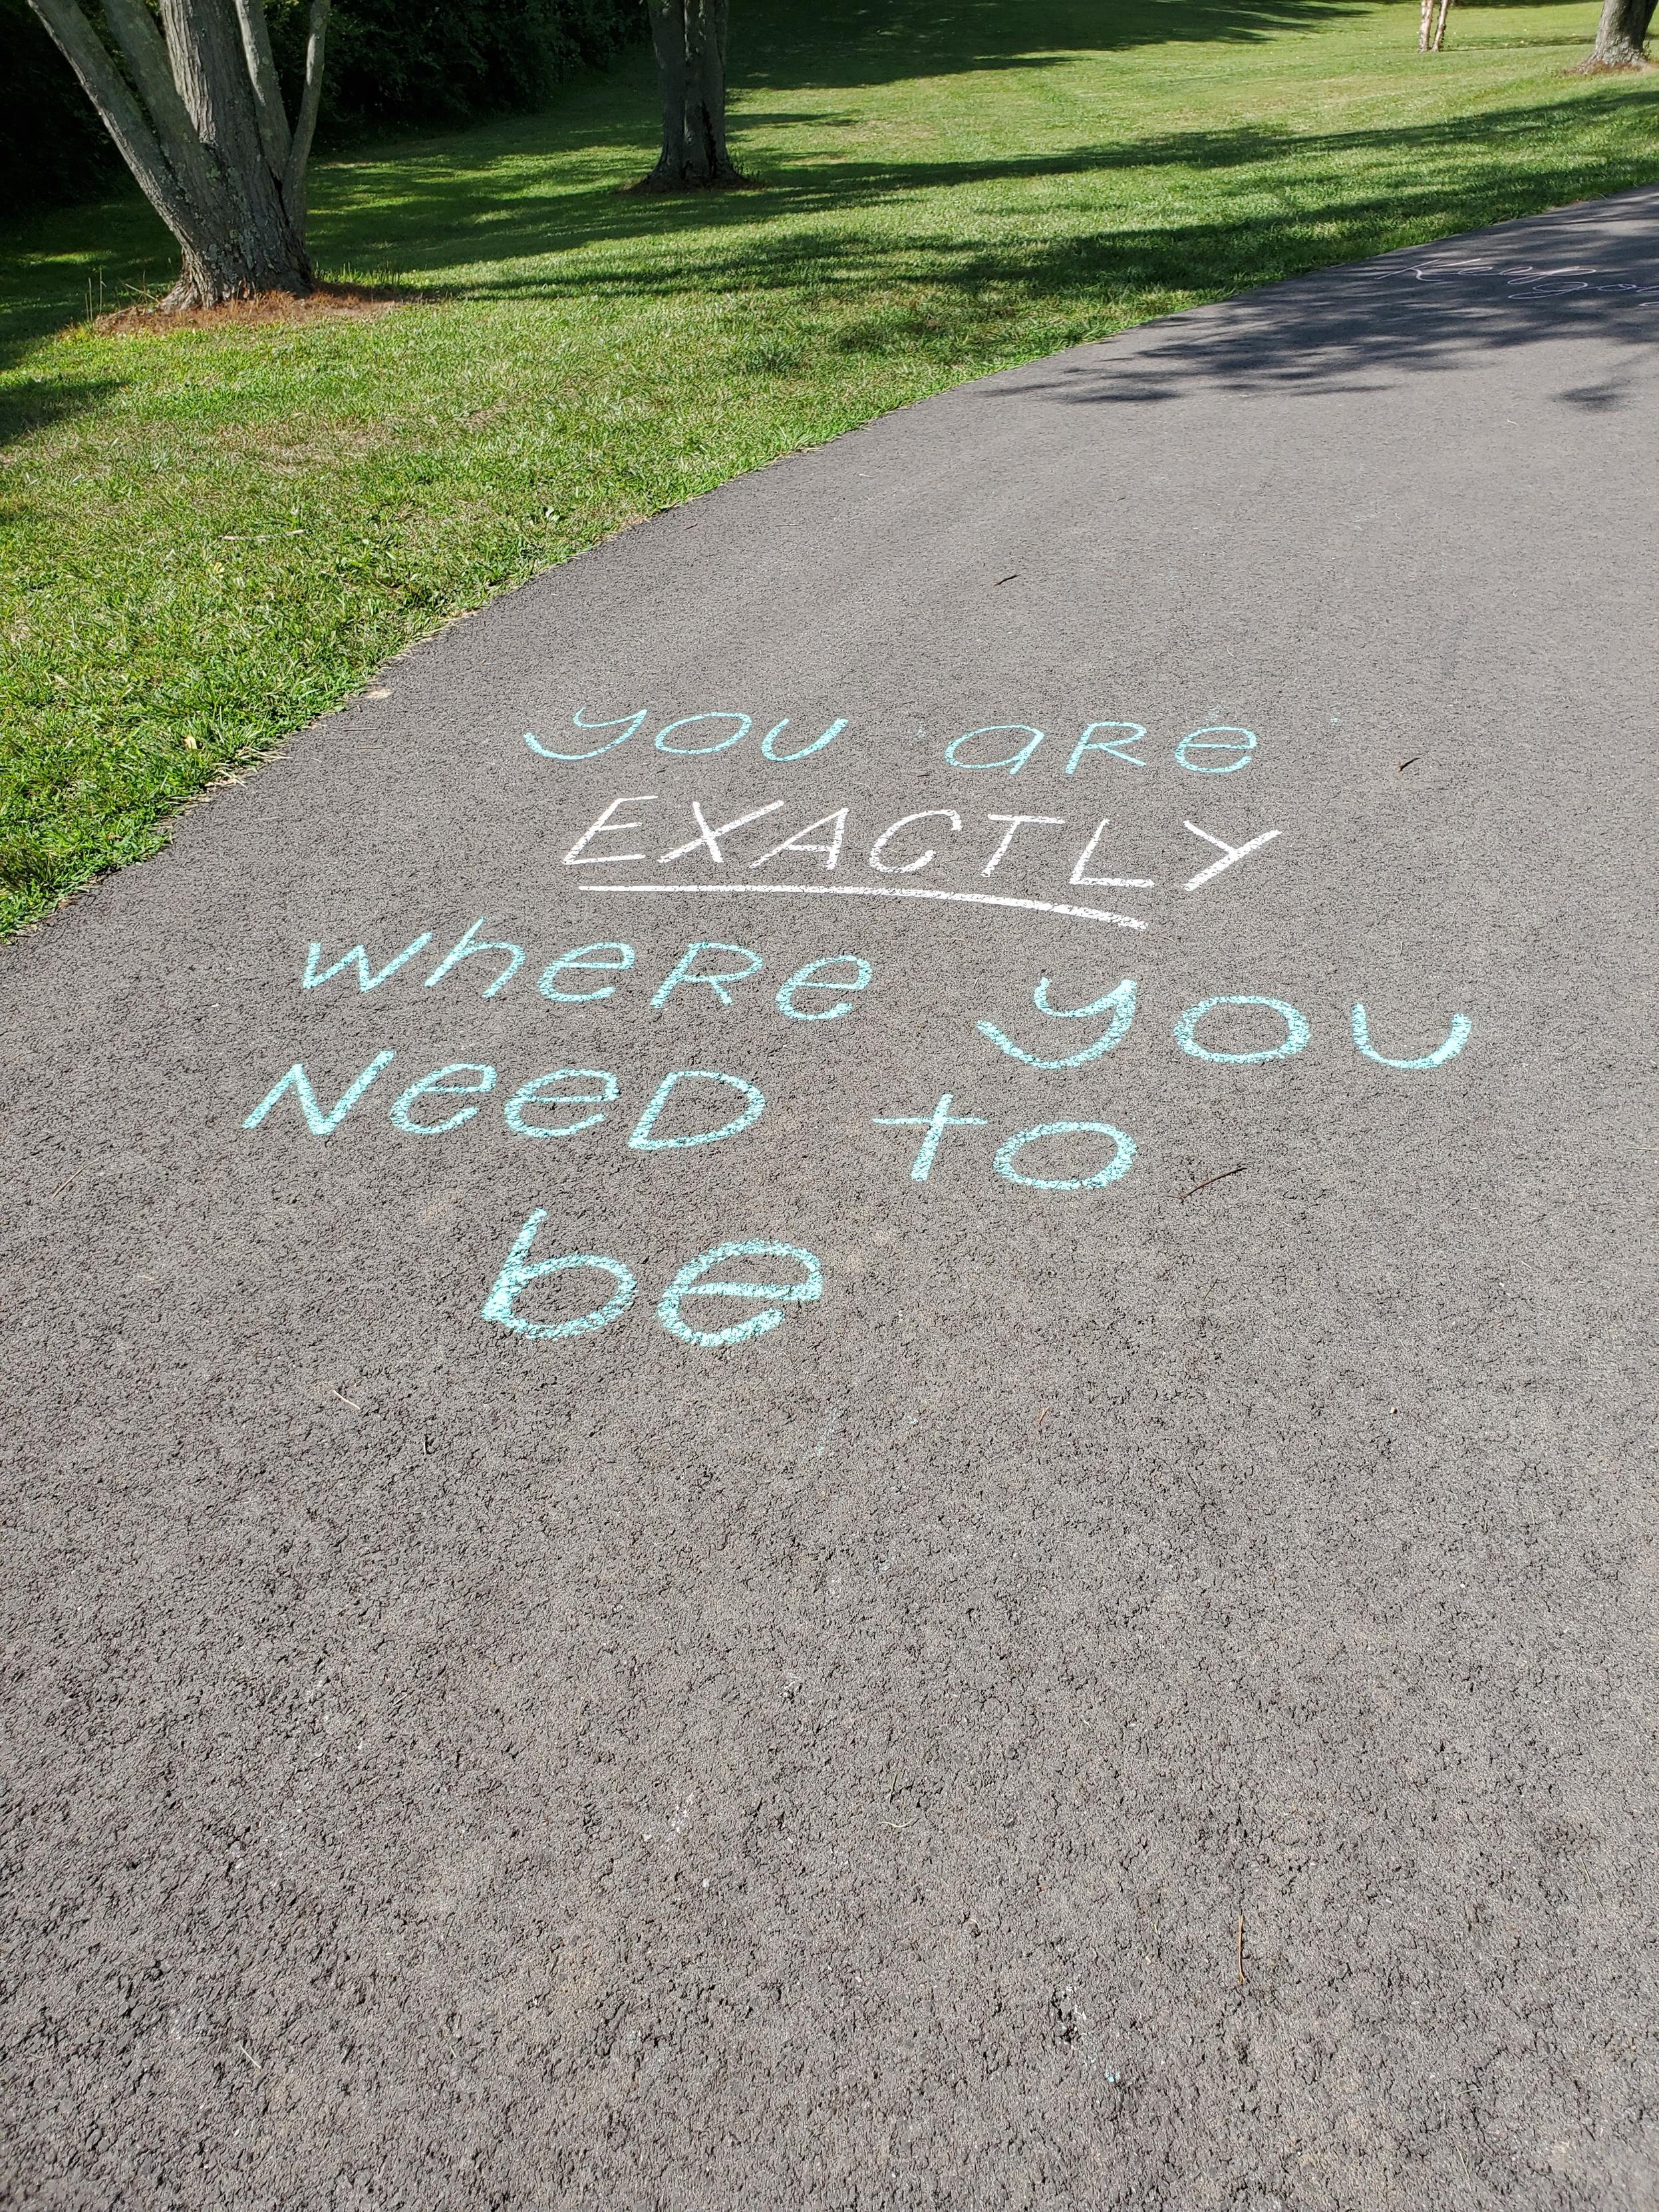 Keep go
you aRe
EXACTLY
wheRe you
NeeD to
be